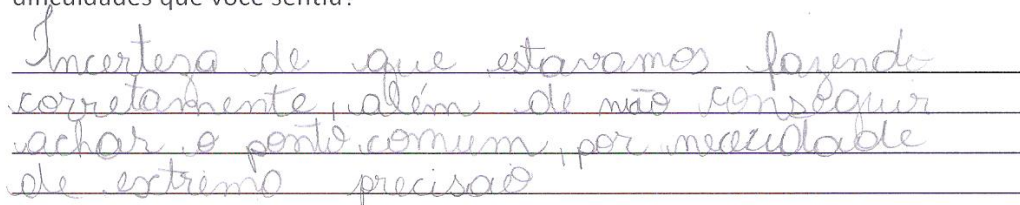 dificuldades que você sentia?
Incerteza de que estavamos fazendo
corretamente, além de não conseguir
achar o ponto comum, por necessidade
de extremo precisão